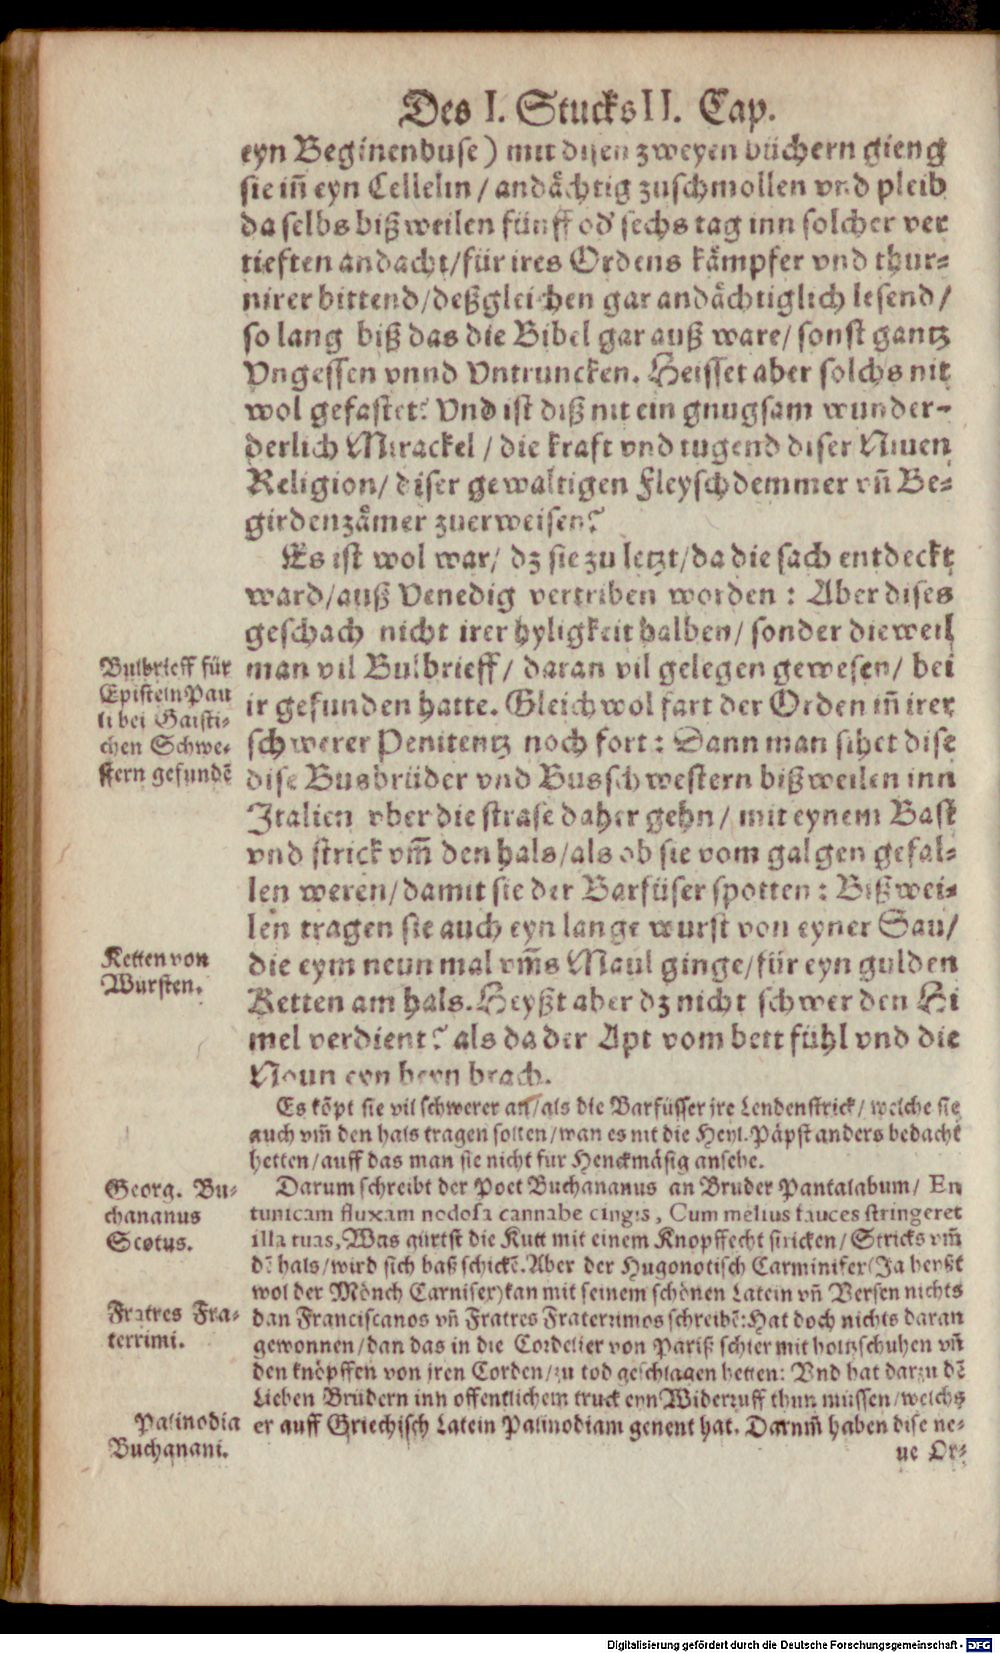 Des I. Stucks II. Cap.
eyn Beginenbuse) mit disen zweyen büchern gieng
sie iñ eyn Cellelin / andächtig zuschmollen vnd pleib
da selbs bißweilen fünff od' sechs tag inn solcher ver
tieften andacht/für ires Ordens kämpfer vnd thur-
nirer bittend/deßgleichen gar andächtiglich lesend/
so lang biß das die Bibel gar auß ware/ sonst gantz
Vngessen vnnd Vntruncken. Heisset aber solchs nit
wol gefastet? Vnd ist diß nit ein gnugsam wunder-
derlich Mirackel / die kraft vnd tugend diser Niuen
Religion/ diser gewaltigen Fleyschdemmer vñ Be-
girdenzämer zuerweisen?
Es ist wol war/ dz sie zu letzt/da die sach entdeckt
ward/auß Venedig vertriben worden : Aber dises
geschach nicht irer hyligkeit halben/ sonder dieweil
man vil Bulbrieff/ daran vil gelegen gewesen/ bei
ir gefunden hatte. Gleichwol fart der Orden iñ irer
schwerer Penitentz noch fort : Dann man sihet dise
dise Busbrüder vnd Busschwestern bißweilen inn
Italien vber die strase daher gehn/ mit eynem Bast
vnd strick vm̃ den hals/als ob sie vom galgen gefal-
len weren/damit sie der Barfüser spotten : Bißwei-
len tragen sie auch eyn lange wurst von eyner Sau/
die eym neun mal vm̃s Maul ginge/für eyn gulden
Ketten am hals. Heyßt aber dz nicht schwer den Hi
mel verdient? als da der Apt vom bett fühl vnd die
Noun eyn beyn brach.
Bulbrieff für
Episteln Pau
li bei Gaisti-
chen Schwe-
stern gefundẽ
Ketten von
Wursten.
Es kõpt sie vil schwerer an/als die Barfüsser jre Lendenstrick/ welche sie
auch vm̃ den hals tragen solten/wan es nit die Heyl. Päpst anders bedacht
hetten/auff das man sie nicht fur Henckmäsig ansehe.
Darum schreibt der Poet Buchananus an Bruder Pantalabum/ En
tunicam fluxam nodosa cannabe cingis, Cum melius fauces stringeret
illa tuas, Was gürtst die Kutt mit einem Knopffecht stricken/ Stricks vm̃
dẽ hals/wird sich baß schickẽ. Aber der Hugonotisch Carminifer(Ja heyßt
wol der Mönch Carnifex)kan mit seinem schönen Latein vñ Versen nichts
dan Franciscanos vñ Fratres Fraterrimos schreibẽ: Hat doch nichts daran
gewonnen/dan das in die Cordelier von Pariß schier mit holtzschuhen vñ
den knöpffen von jren Corden/zu tod geschlagen hetten: Vnd hat darzu dẽ
Lieben Brüdern inn offentlichem truck eyn Widerruff thun müssen/welchs
er auff Griechisch Latein Palinodiam genent hat. Darum̃ haben dise ne-
ue Or-
Georg. Bu-
chananus
Scotus.
Fratres Fra-
terrimi.
Palinodia
Buchanani.
Digitalisierung gefördert durch die Deutsche Forschungsgemeinschaft - DFG